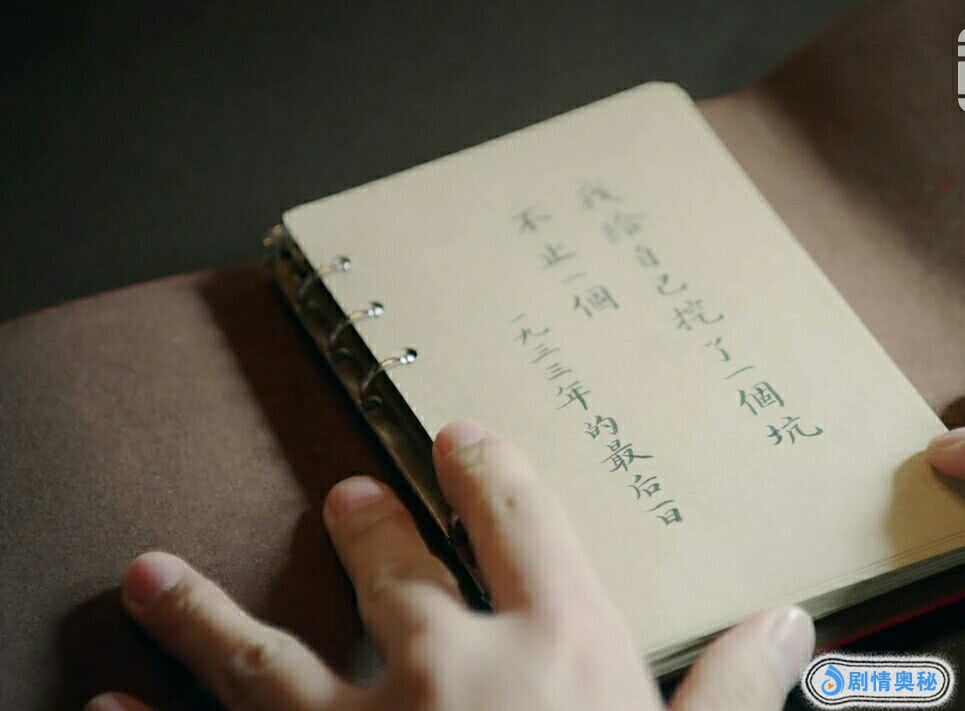 我给自己挖了一個坑
不止一個
一九三三年的最后一日
剧情奥秘